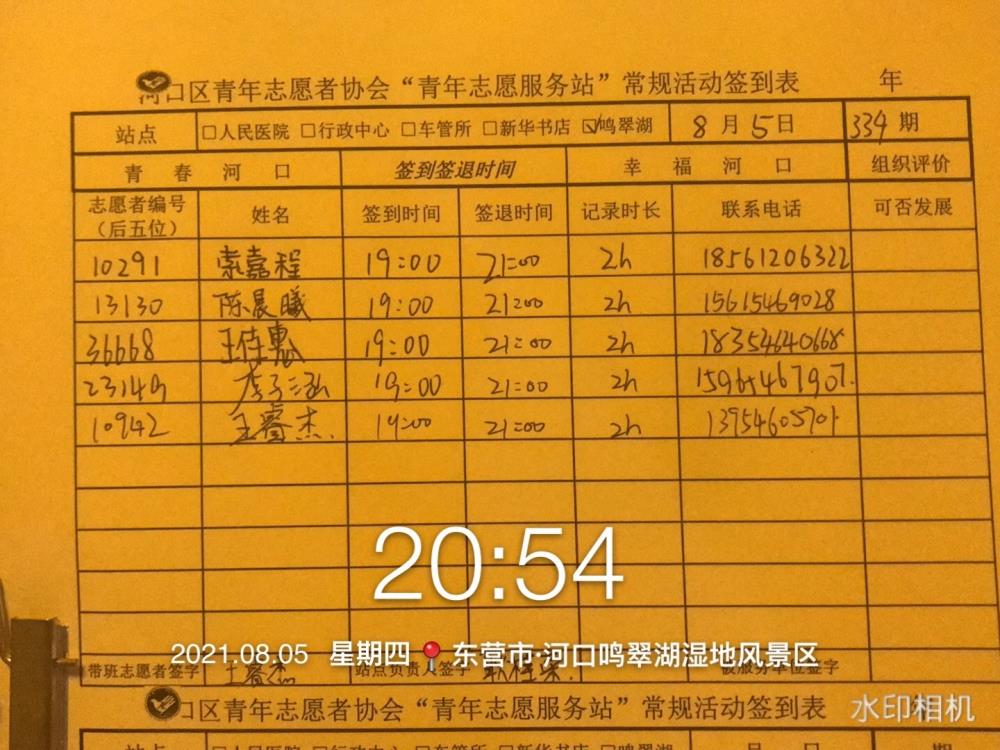 河口区青年志愿者协会“青年志愿服务站”常规活动签到表 年
站点 □人民医院 □行政中心 □车管所 □新华书店 ☑鸣翠湖 8月5日 334期
青春河口 签到签退时间 幸福河口 组织评价
志愿者编号（后五位） 姓名 签到时间 签退时间 记录时长 联系电话 可否发展
10291 索嘉程 19:00 21:00 2h 18561206322
13130 陈晨曦 19:00 21:00 2h 15615469028
36668 王佳惠 19:00 21:00 2h 18354640668
23149 李子泓 19:00 21:00 2h 15965467907
10942 王睿杰 19:00 21:00 2h 13954605701
20:54
2021.08.05 星期四 东营市·河口鸣翠湖湿地风景区
带班志愿者签字 王睿杰 站点负责人签字 被服务单位签字
口区青年志愿者协会“青年志愿服务站”常规活动签到表
水印相机
站点 □人民医院 □行政中心 □车管所 □新华书店 □鸣翠湖 月 日 期